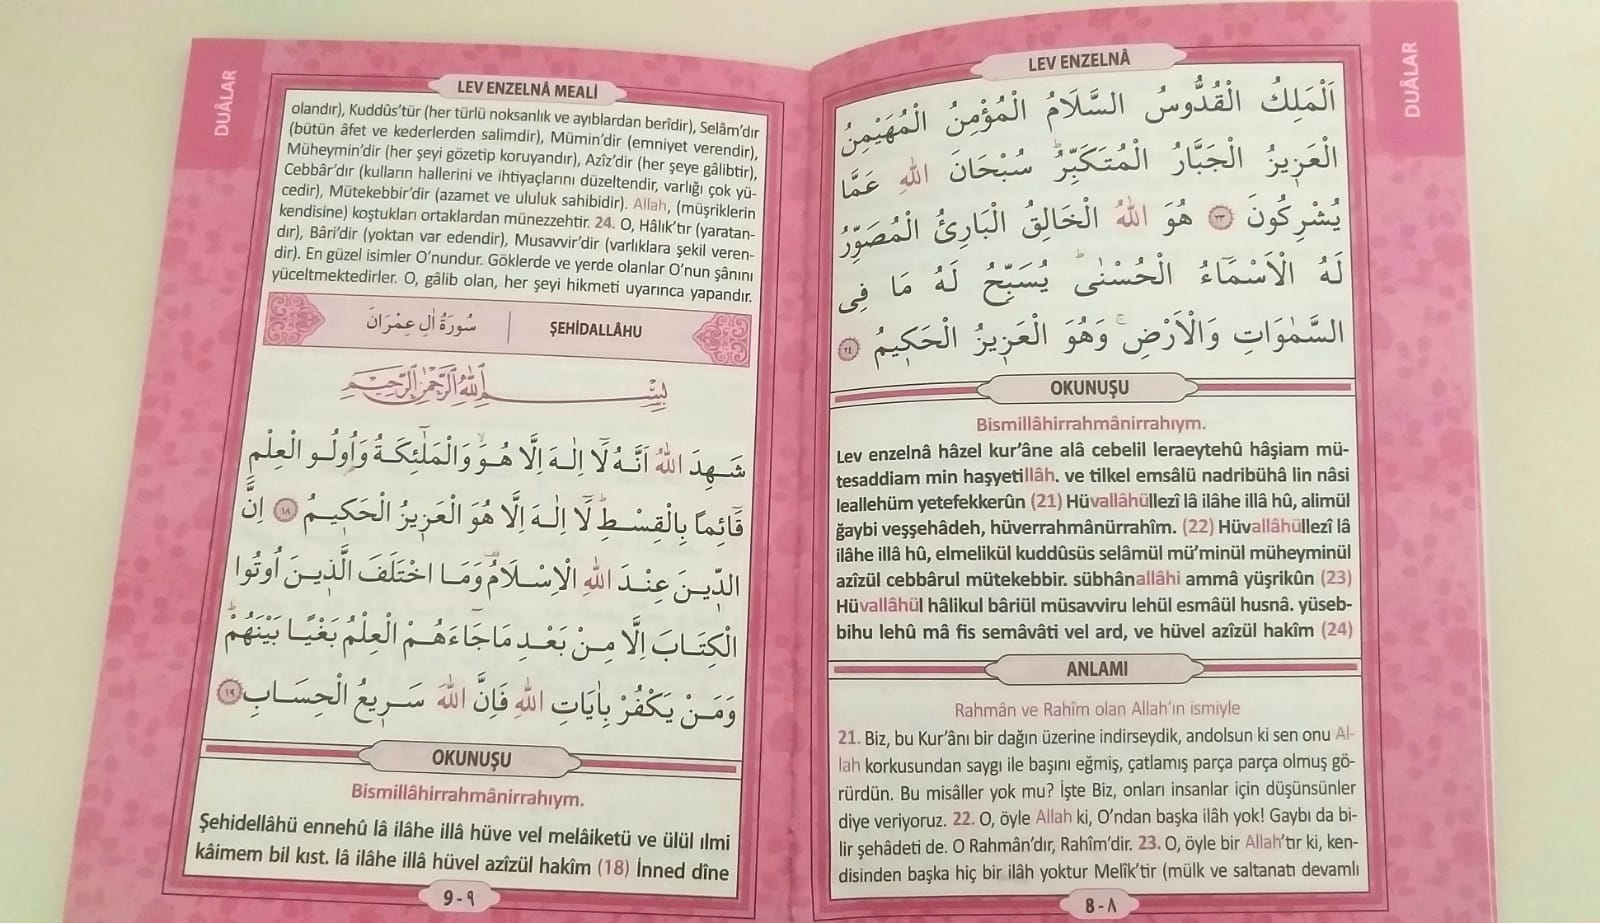 DUÂLAR
LEV ENZELNÂ
اَلْمَلِكُ الْقُدُّوسُ السَّلَامُ الْمُؤْمِنُ الْمُهَيْمِنُ
الْعَز۪يزُ الْجَبَّارُ الْمُتَكَبِّرُۜ سُبْحَانَ اللّٰهِ عَمَّا
يُشْرِكُونَ ﴿٢٣﴾ هُوَ اللّٰهُ الْخَالِقُ الْبَارِئُ الْمُصَوِّرُ
لَهُ الْاَسْمَٓاءُ الْحُسْنٰىۜ يُسَبِّحُ لَهُ مَا فِى
السَّمٰوَاتِ وَالْاَرْضِۚ وَهُوَ الْعَز۪يزُ الْحَك۪يمُ ﴿٢٤﴾
OKUNUŞU
Bismillâhirrahmânirrahıym.
Lev enzelnâ hâzel kur’âne alâ cebelil leraeytehû hâşiam mü-
tesaddiam min haşyetillâh. ve tilkel emsâlü nadribühâ lin nâsi
leallehüm yetefekkerûn (21) Hüvallâhüllezî lâ ilâhe illâ hû, alimül
ğaybi veşşehâdeh, hüverrahmânürrahîm. (22) Hüvallâhüllezî lâ
ilâhe illâ hû, elmelikül kuddûsüs selâmül mü’minül müheyminül
azîzül cebbârul mütekebbir. sübhânallâhi ammâ yüşrikûn (23)
Hüvallâhül hâlikul bâriül müsavviru lehül esmâül husnâ. yüseb-
bihu lehû mâ fis semâvâti vel ard, ve hüvel azîzül hakîm (24)
ANLAMI
Rahmân ve Rahîm olan Allah’ın ismiyle
21. Biz, bu Kur’ânı bir dağın üzerine indirseydik, andolsun ki sen onu Al-
lah korkusundan saygı ile başını eğmiş, çatlamış parça parça olmuş gö-
rürdün. Bu misâller yok mu? İşte Biz, onları insanlar için düşünsünler
diye veriyoruz. 22. O, öyle Allah ki, O’ndan başka ilâh yok! Gaybı da bi-
lir şehâdeti de. O Rahmân’dır, Rahîm’dir. 23. O, öyle bir Allah’tır ki, ken-
disinden başka hiç bir ilâh yoktur Melîk’tir (mülk ve saltanatı devamlı
8-٨
DUÂLAR
LEV ENZELNÂ MEALİ
olandır), Kuddûs’tür (her türlü noksanlık ve ayıblardan berîdir), Selâm’dır
(bütün âfet ve kederlerden salimdir), Mümin’dir (emniyet verendir),
Müheymin’dir (her şeyi gözetip koruyandır), Azîz’dir (her şeye gâlibtir),
Cebbâr’dır (kulların hallerini ve ihtiyaçlarını düzeltendir, varlığı çok yü-
cedir), Mütekebbir’dir (azamet ve ululuk sahibidir). Allah, (müşriklerin
kendisine) koştukları ortaklardan münezzehtir. 24. O, Hâlık’tır (yaratan-
dır), Bâri’dir (yoktan var edendir), Musavvir’dir (varlıklara şekil veren-
dir). En güzel isimler O’nundur. Göklerde ve yerde olanlar O’nun şânını
yüceltmektedirler. O, gâlib olan, her şeyi hikmeti uyarınca yapandır.
سُورَةُ اٰلِ عِمْرَانَ | ŞEHİDALLÂHU
بِسْمِ اللّٰهِ الرَّحْمٰنِ الرَّحِيمِ
شَهِدَ اللّٰهُ اَنَّهُ لَٓا اِلٰهَ اِلَّا هُوَۙ وَالْمَلٰٓئِكَةُ وَاُولُو الْعِلْمِ
قَٓائِماً بِالْقِسْطِۜ لَٓا اِلٰهَ اِلَّا هُوَ الْعَز۪يزُ الْحَك۪يمُ ﴿١٨﴾ اِنَّ
الدّ۪ينَ عِنْدَ اللّٰهِ الْاِسْلَامُ۠ وَمَا اخْتَلَفَ الَّذ۪ينَ اُوتُوا
الْكِتَابَ اِلَّا مِنْ بَعْدِ مَا جَٓاءَهُمُ الْعِلْمُ بَغْيًا بَيْنَهُمْۜ
وَمَنْ يَكْفُرْ بِاٰيَاتِ اللّٰهِ فَاِنَّ اللّٰهَ سَر۪يعُ الْحِسَابِ ﴿١٩﴾
OKUNUŞU
Bismillâhirrahmânirrahıym.
Şehidellâhü ennehû lâ ilâhe illâ hüve vel melâiketü ve ülül ılmi
kâimem bil kıst. lâ ilâhe illâ hüvel azîzül hakîm (18) İnned dîne
9-٩